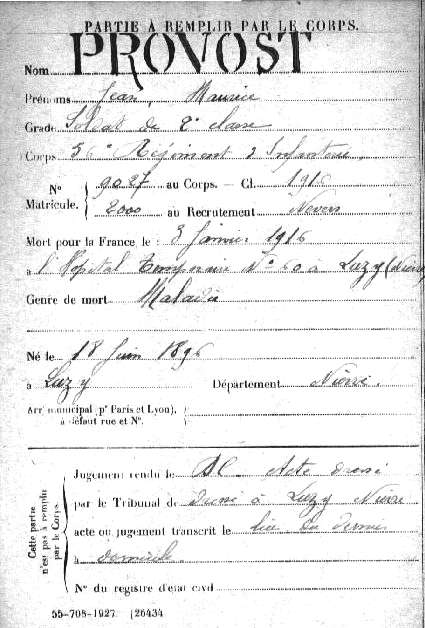 PARTIE À REMPLIR PAR LE CORPS.
PROVOST
Nom
Prénoms Jean, Maurice
Grade Soldat de 2e classe
Corps 56e Régiment d'Infanterie
N° Matricule. 9027 au Corps. — Cl. 1916
2000 au Recrutement Nevers
Mort pour la France le 3 Janvier 1916
à l'Hôpital Temporaire N° 60 à Luzy (Nièvre
Genre de mort Maladie
Né le 18 Juin 1896
à Luzy Département Nièvre.
Arr' municipal (p' Paris et Lyon),
à défaut rue et N°.
Cette partie
n'est pas à remplir
par le Corps.
Jugement rendu le Acte
par le Tribunal de à Luzy Nièvre
acte ou jugement transcrit le lieu du dernier
à domicile
N° du registre d'état civil
55-708-1927. [26434